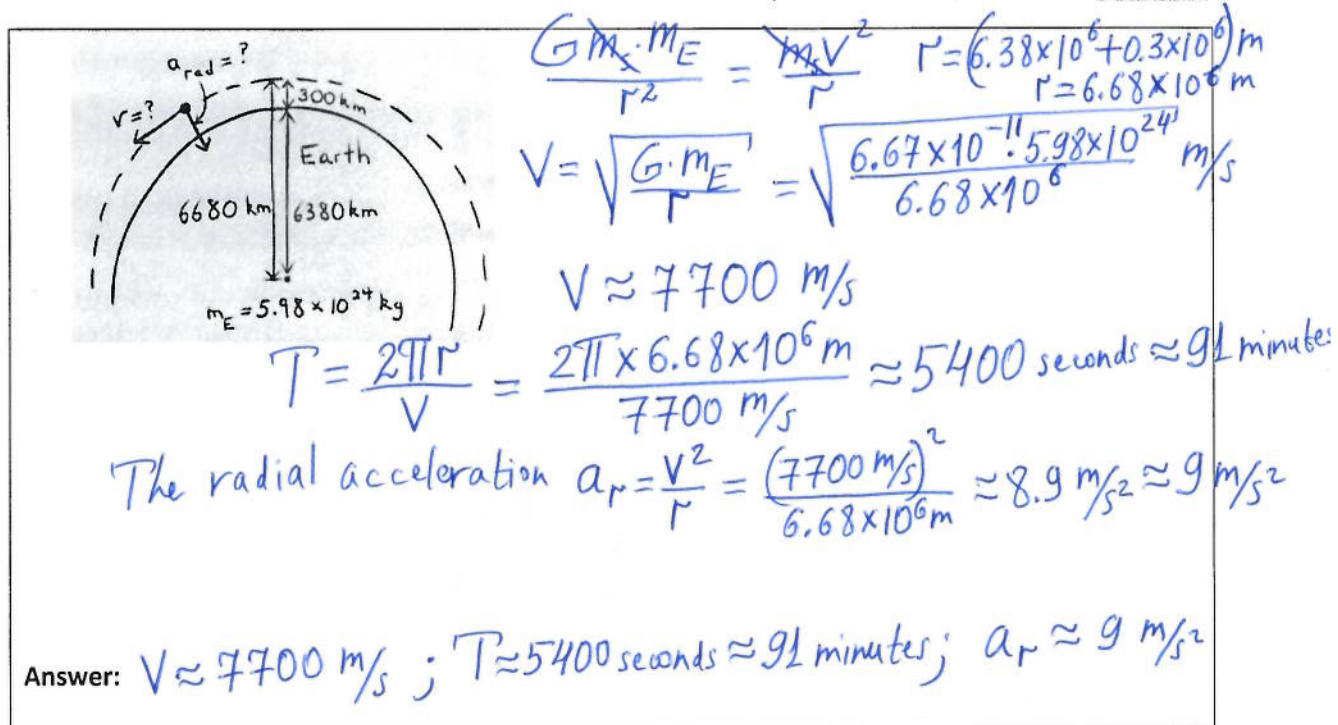 a_rad = ?
v = ?
300 km
Earth
6680 km
6380 km
m_E = 5.98 × 10^24 kg
G m_s · m_E / r^2 = m_s V^2 / r
r = (6.38×10^6 + 0.3×10^6) m
r = 6.68×10^6 m
V = √(G · m_E / r) = √(6.67×10^-11 · 5.98×10^24 / 6.68×10^6) m/s
V ≈ 7700 m/s
T = 2πr / V = 2π × 6.68×10^6 m / 7700 m/s ≈ 5400 seconds ≈ 91 minutes
The radial acceleration a_r = V^2 / r = (7700 m/s)^2 / 6.68×10^6 m ≈ 8.9 m/s^2 ≈ 9 m/s^2
Answer: V ≈ 7700 m/s ; T ≈ 5400 seconds ≈ 91 minutes; a_r ≈ 9 m/s^2